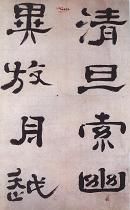 清旦索幽
異放舟越